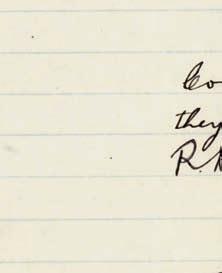 Co
they
R.